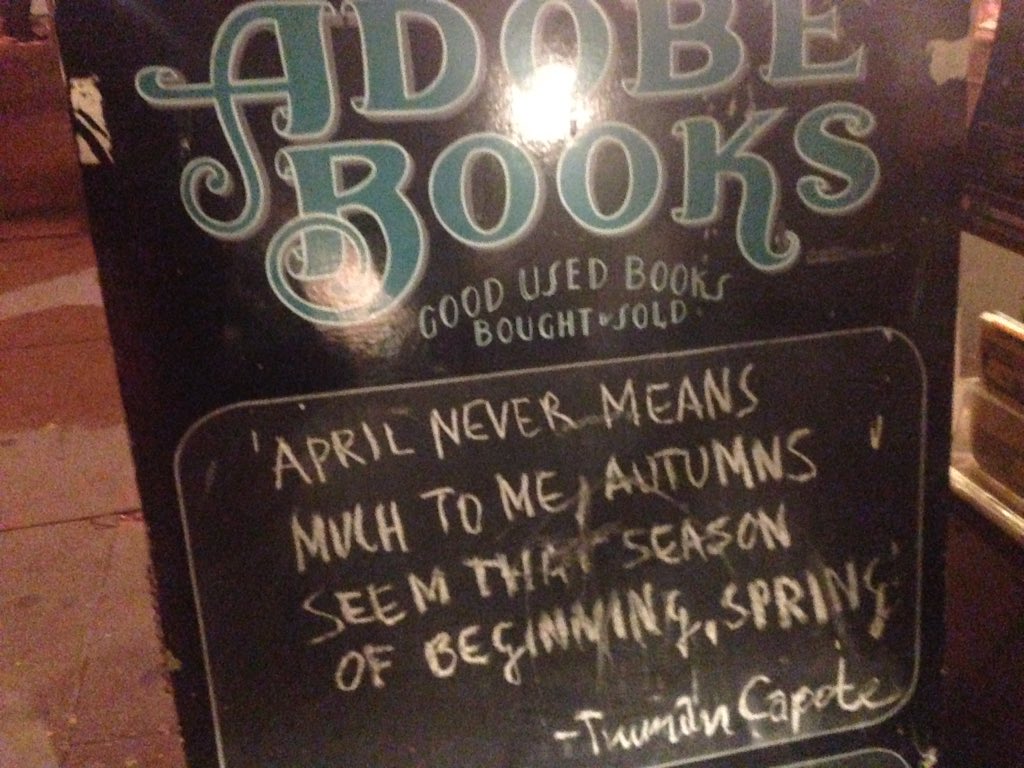 ADOBE
BOOKS
GOOD USED BOOKS
BOUGHT & SOLD
'APRIL NEVER MEANS
MUCH TO ME, AUTUMNS
SEEM THAT SEASON
OF BEGINNING, SPRING'
-Truman Capote